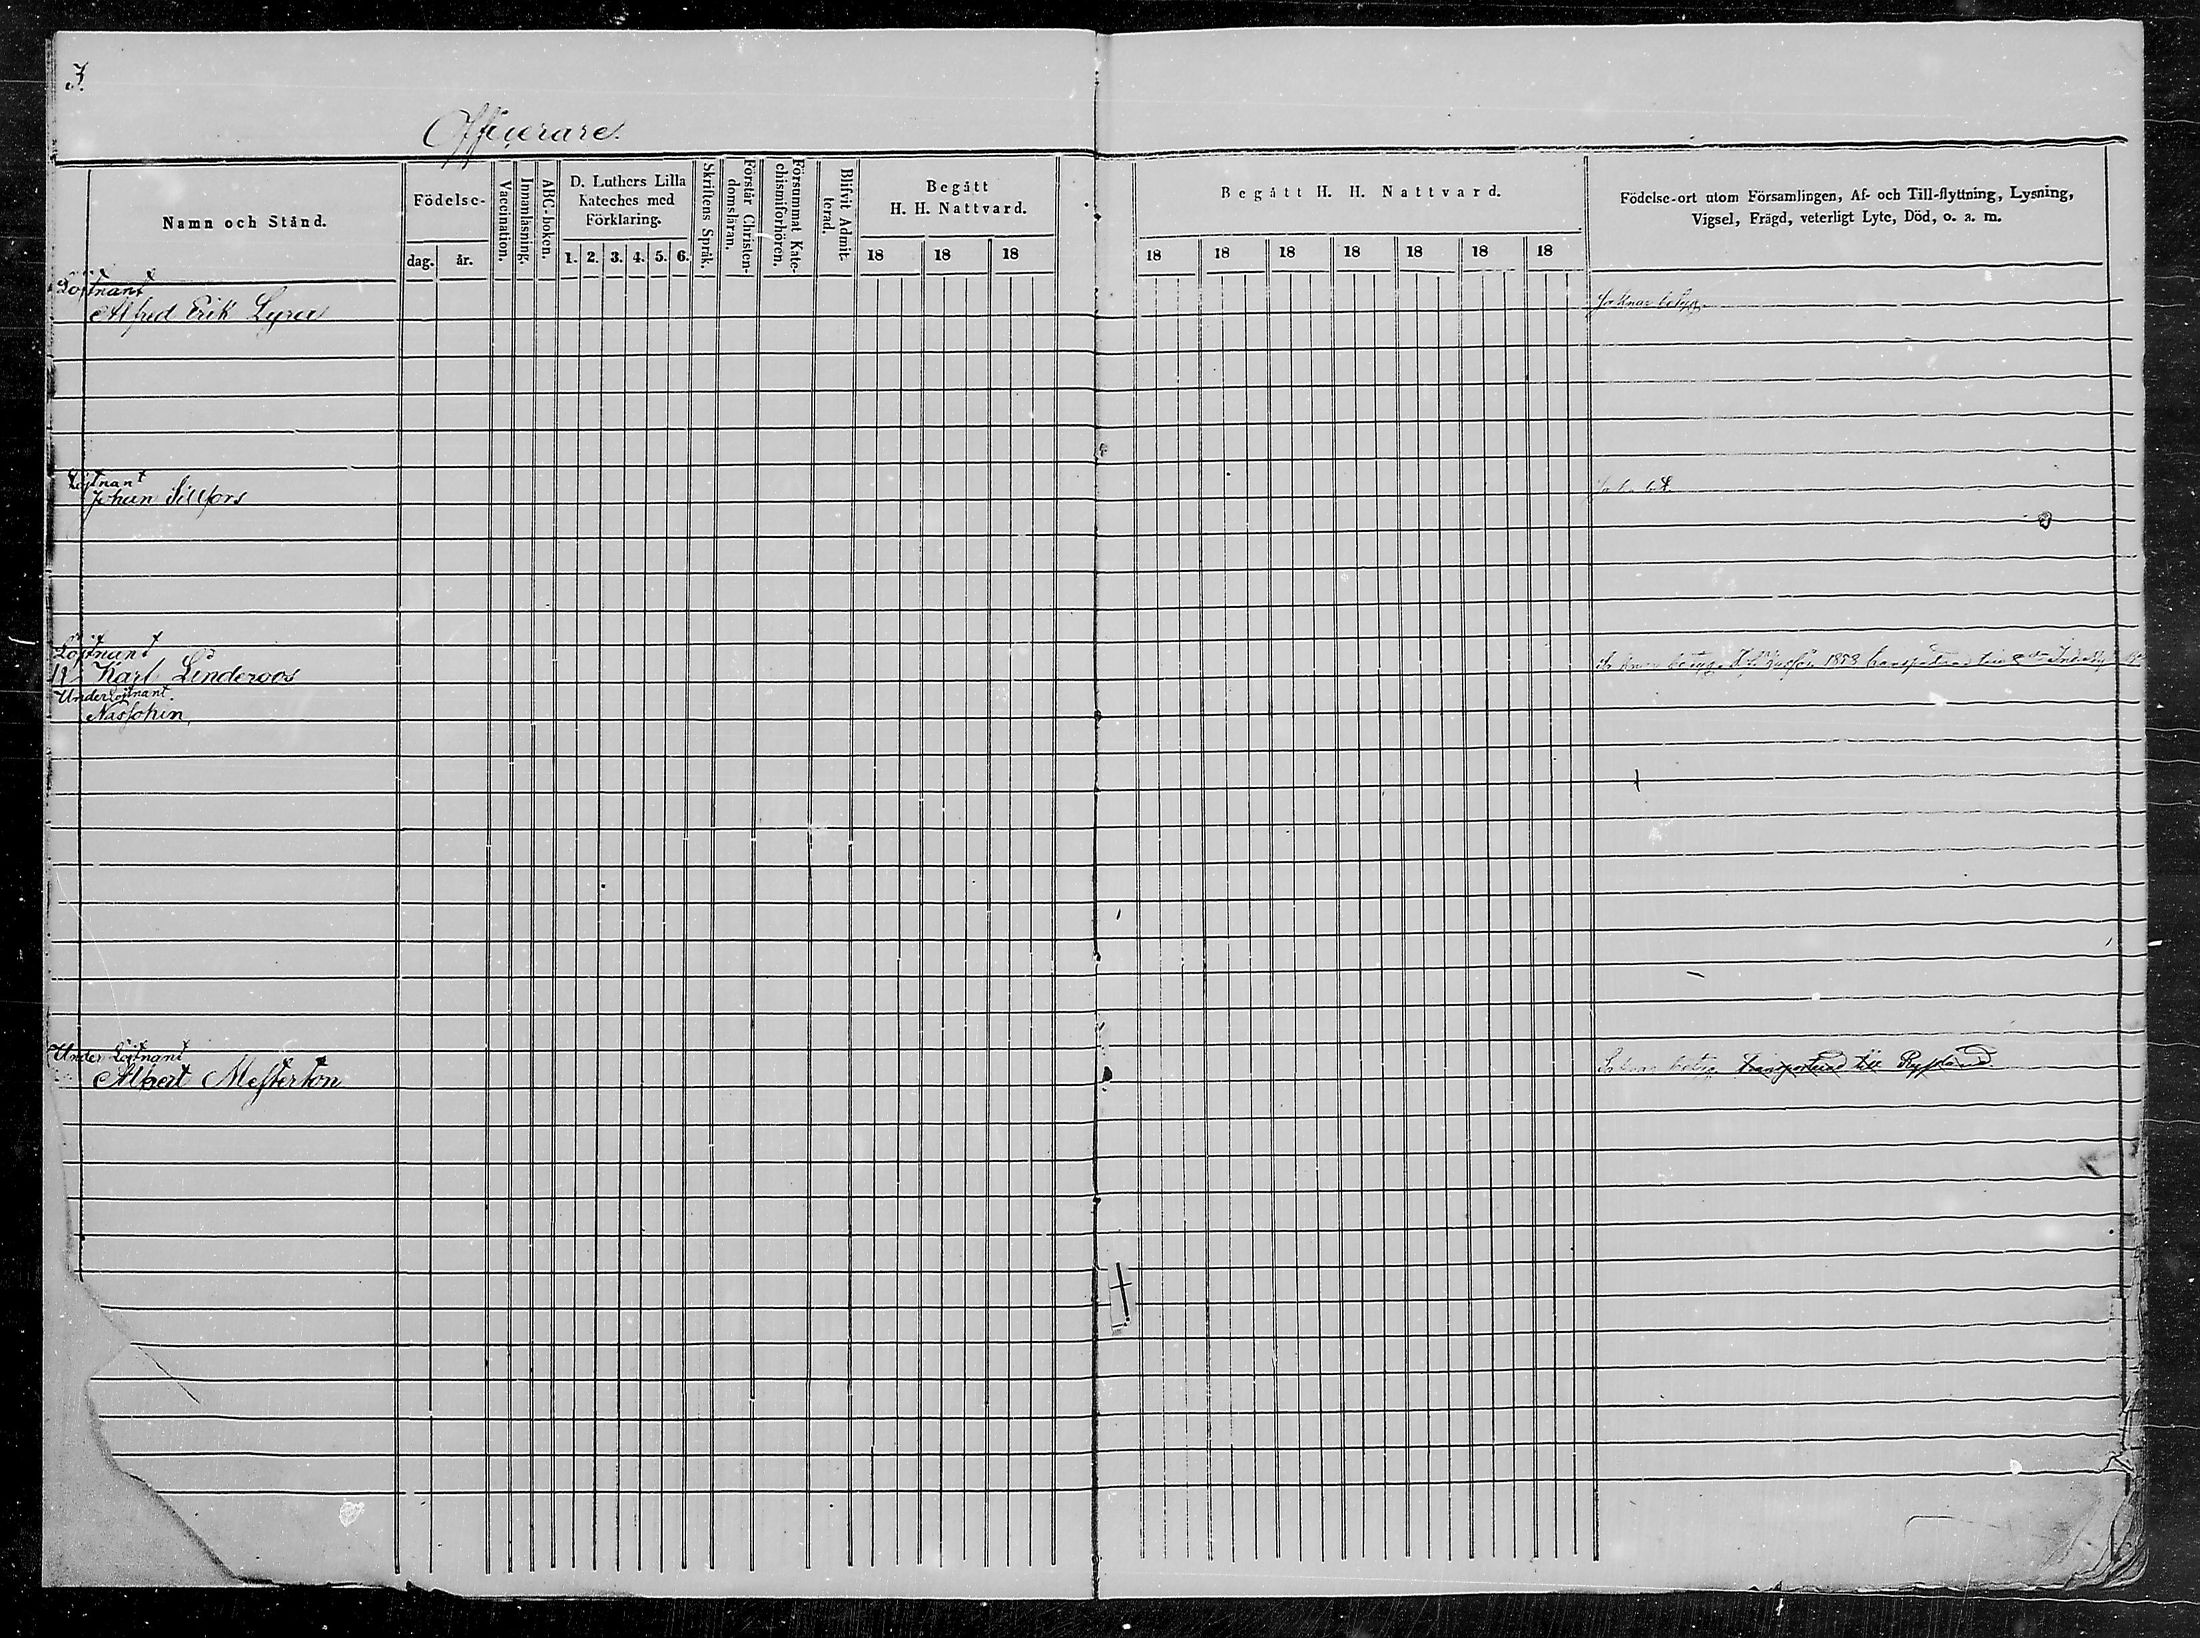 3.
Officerare.
Namn och Stånd.
Födelse-
dag. år.
Vaccination.
Innanläsning.
ABC-boken.
D. Luthers Lilla
Kateches med
Förklaring.
1. 2. 3. 4. 5. 6.
Skriftens Språk.
Förstår Christen-
domsläran.
Försummat Kate-
chismiförhören.
Blifvit Admit-
terad.
Begått
H. H. Nattvard.
18 18 18
Begått H. H. Nattvard.
18 18 18 18 18 18 18
Födelse-ort utom Församlingen, Af- och Till-flyttning, Lysning,
Vigsel, Frägd, veterligt Lyte, Död, o. a. m.
Löjtnant
Alfred Erik Lyra
Saknar betyg.
Löjtnant
Johan Sillfors
Löjtnant
Karl Linderoos
Saknar betyg. 1858 transporterad till
UnderLöjtnant.
Nassokin,
Under Löjtnant
Albert Mesterton
Saknar betyg. transporterad till Ryssland.